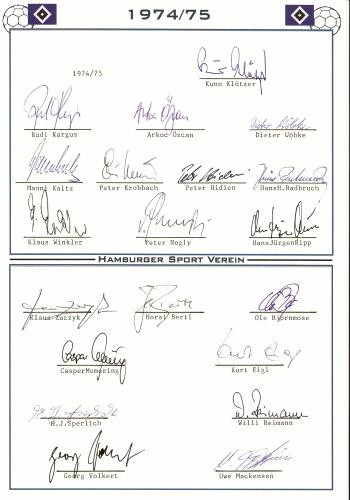 1974/75
1974/75
Kuno Klötzer
Rudi Kargus
Arkoc Özcan
Dieter Wöbke
Manni Kaltz
Peter Krobbach
Peter Hidien
HansH.Radbruch
Klaus Winkler
Peter Nogly
HansJürgenRipp
Hamburger Sport Verein
Klaus Zaczyk
Horst Bertl
Ole Björnmose
CasperMemering
Kurt Eigl
H.J.Sperlich
Willi Reimann
Georg Volkert
Uwe Mackensen